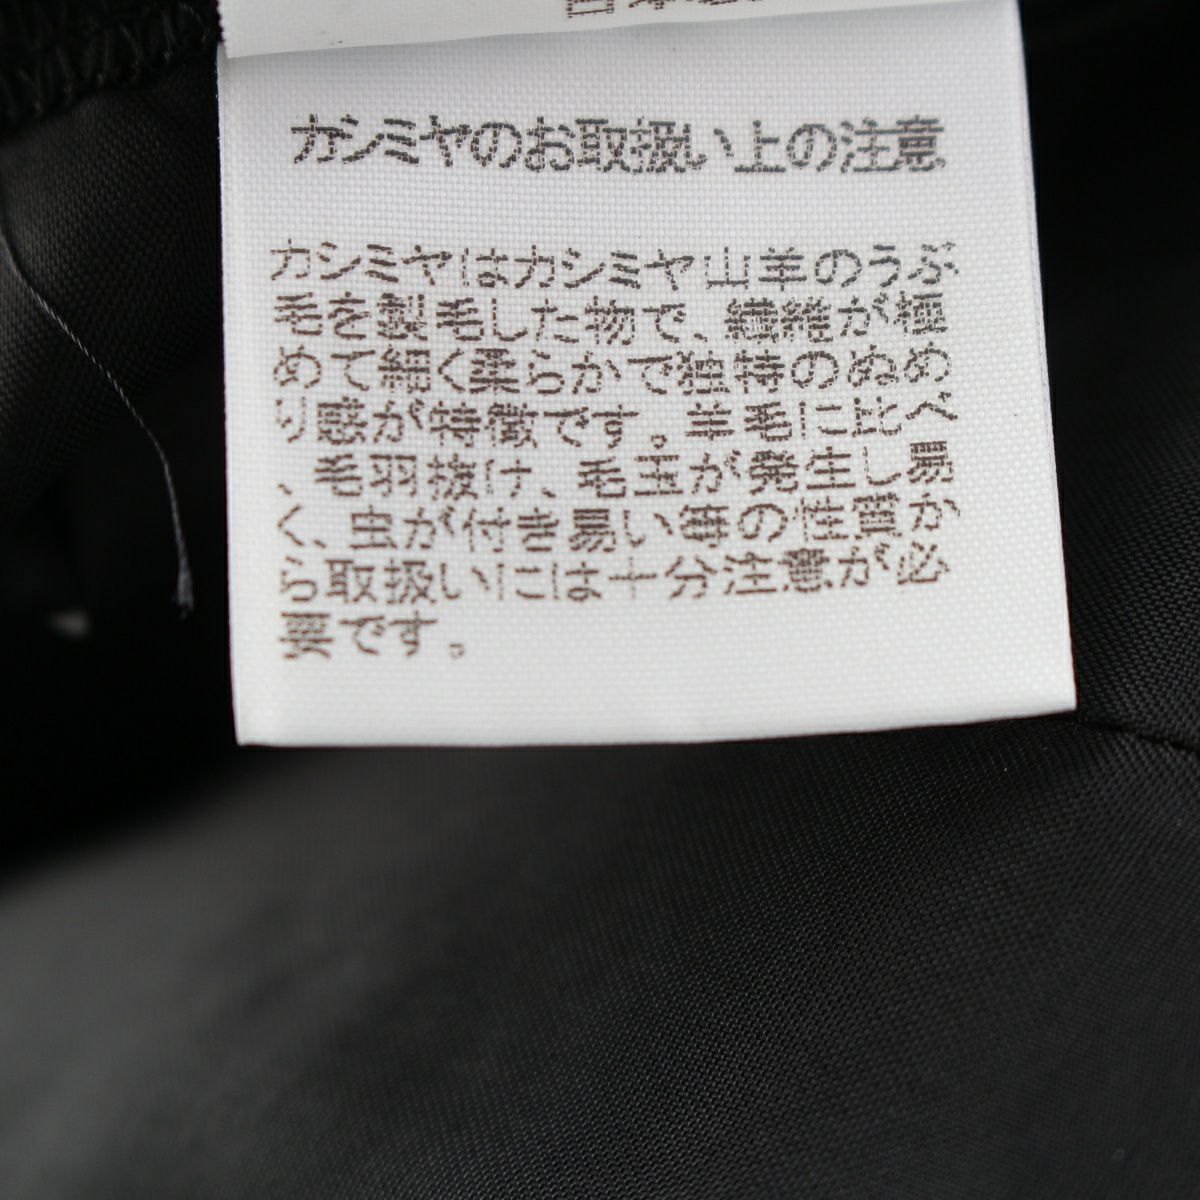 カシミヤのお取扱い上の注意
カシミヤはカシミヤ山羊のうぶ
毛を製毛した物で、繊維が極
めて細く柔らかで独特のぬめ
り感が特徴です。羊毛に比べ
、毛羽抜け、毛玉が発生し易
く、虫が付き易い等の性質か
ら取扱いには十分注意が必
要です。